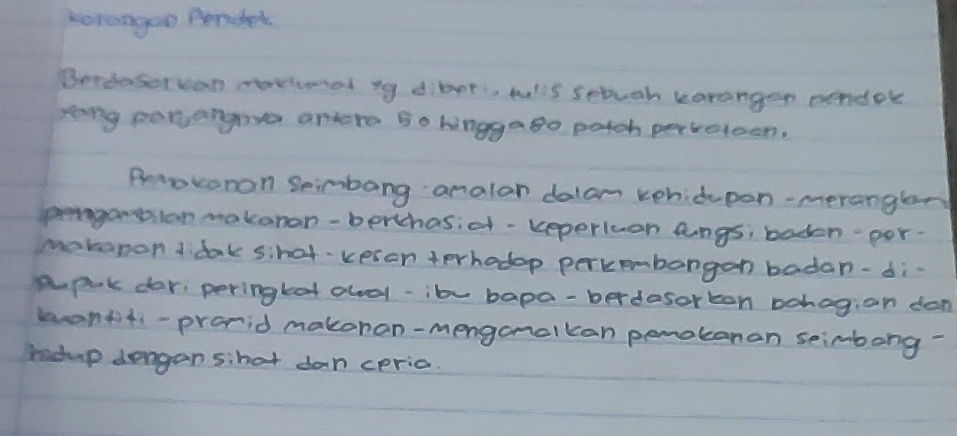 Karangan Pendek
Berdasarkan maklumat yg diberi, tulis sebuah karangan pendek
yang panjangnya antara 50 hingga 80 patah perkataan.
Pemakanan seimbang - amalan dalam kehidupan - merangkumi
pengambilan makanan - berkhasiat - keperluan fungsi badan - per-
makanan tidak sihat - kesan terhadap perkembangan badan - di-
pupuk dari peringkat awal - ibu bapa - berdasarkan bahagian dan
kuantiti - pramid makanan - mengamalkan pemakanan seimbang -
hidup dengan sihat dan ceria.